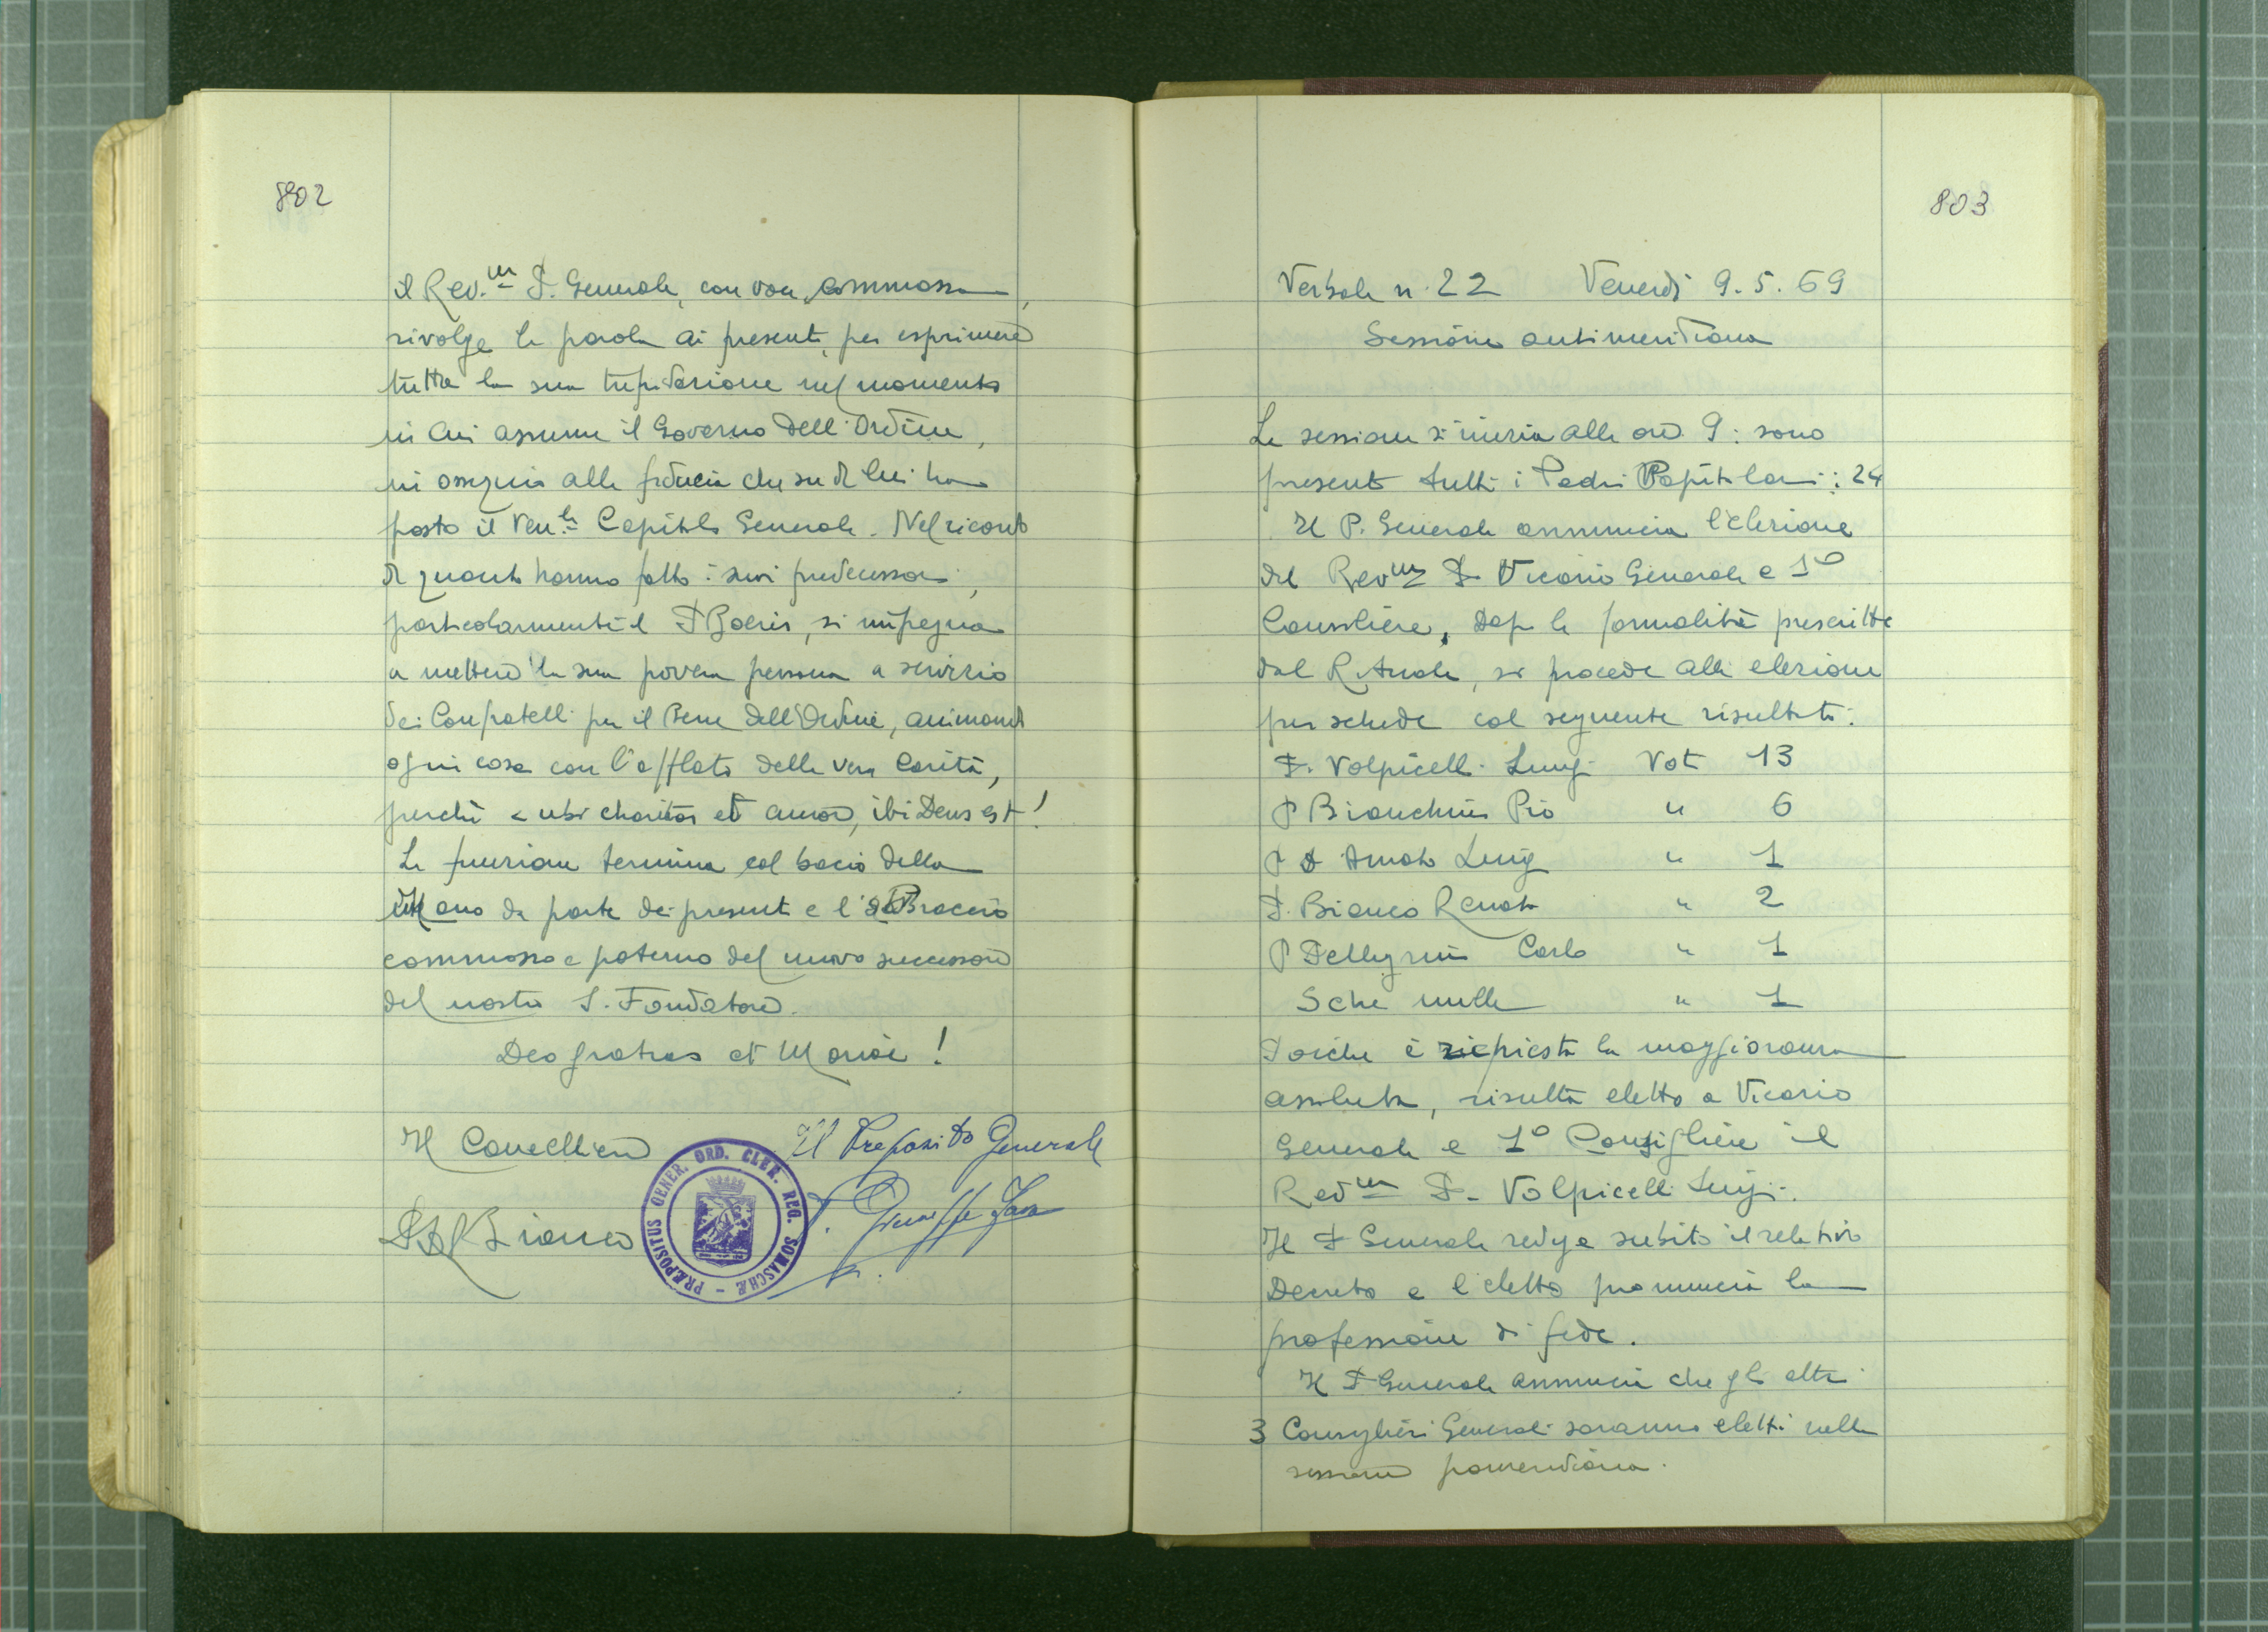 802
il Rev.m P. Generale, con voce commossa,
rivolge la parola ai presenti, per esprimere
tutta la sua trepidazione nel momento
in cui assume il Governo dell'Ordine,
in ossequio alla fiducia che su di lui ha
posto il Ven.le Capitolo Generale. Nel ricordo
di quanto hanno fatto i suoi predecessori,
particolarmente il P Boeris, si impegna
a mettere la sua povera persona a servizio
dei Confratelli per il Bene dell'Ordine, animando
ogni cosa con l'afflato della vera Carità,
perché < ubi charitas et amor, ibi Deus est!
La funzione termina col bacio della
Mano da parte dei presenti e l'abBraccio
commosso e paterno del nuovo successore
del nostro S. Fondatore.
Deo gratias et Mariae!
Il Cancelliere
Il Preposito Generale
Bianco
P. Giuseppe Fava
PRÆPOSITUS GENER. ORD. CLER. REG. SOMASCHÆ -
803
Verbale n. 22 Venerdì 9. 5. 69
Sessione antimeridiana
La sessione si inizia alle ore 9: sono
presenti tutti i Padri Capitolari: 24
Il P. Generale annuncia l'elezione
del Revm P. Vicario Generale e 1o
Consigliere, Dopo le formalità prescritte
dal Rituale, si procede alla elezione
per schede col seguente risultato:
P. Volpicelli Luigi Voti 13
P Bianchini Pio " 6
P D Amato Luigi " 1
P. Bianco Renato " 2
P Pellegrini Carlo " 1
Sche nulle " 1
Poiché è richiesta la maggioranza
assoluta, risulta eletto a Vicario
Generale e 1o Consigliere il
Revm P. Volpicelli Luigi.
Il P Generale redige subito il relativo
Decreto e l'eletto pronuncia la
professione di fede.
Il P Generale annuncia che gli altri
3 Consiglieri Generali saranno eletti nella
sessione pomeridiana.